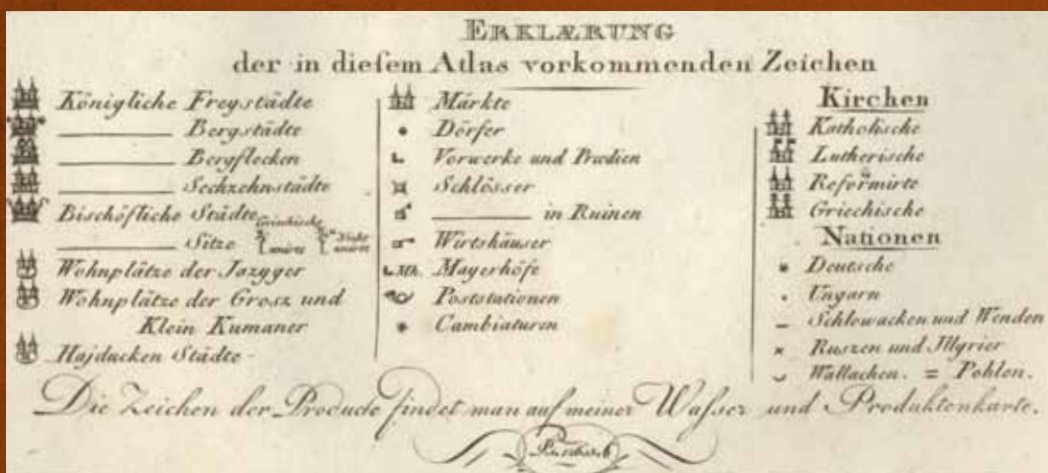 ERKLÆRUNG
der in dieſem Atlas vorkommenden Zeichen
Königliche Freystädte
——— Bergstädte
——— Bergflecken
——— Sechzehnstädte
Bischöfliche Städte
——— Sitze Griechische unirte Nicht unirte
Wohnplätze der Jazyger
Wohnplätze der Grosz und
Klein Kumaner
Hajducken Städte
Märkte
Dörfer
Vorwerke und Prædien
Schlösser
——— in Ruinen
Wirtshäuser
Mayerhöfe
Poststationen
Cambiaturen
Kirchen
Katholische
Lutherische
Reformirte
Griechische
Nationen
Deutsche
Ungarn
Schlowacken und Wenden
Ruszen und Illyrier
Wallachen. = Pohlen.
Die Zeichen der Producte findet man auf meiner Waſser und Produktenkarte.